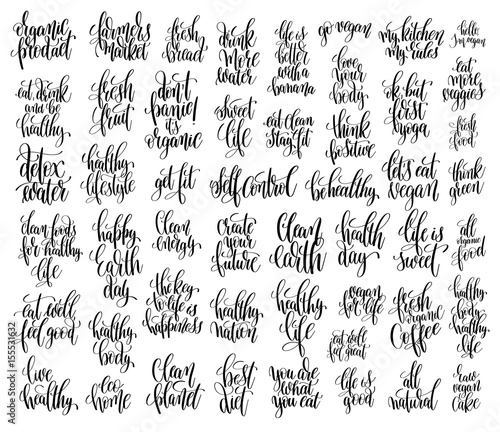 organic
product
farmers
market
fresh
bread
drink
more
water
life is
better
with a
banana
go vegan
my kitchen
my rules
hello,
I'm vegan
eat, drink
and be
healthy
fresh
fruit
don't
panic!
it's
organic
sweet
life
eat clean
stay fit
love
your
body
think
positive
ok, but
first
yoga
eat
more
veggies
fresh
food
detox
water
healthy
lifestyle
get fit
self control
be healthy
let's eat
vegan
think
green
clean foods
for healthy
life
happy
earth
day
clean
energy
create
your
future
clean
earth
health
day
life is
sweet
all
organic
food
eat well
feel good
healthy
body
the key
to life is
happiness
healthy
nation
healthy
life
vegan
for life
eat well
feel great
fresh
organic
coffee
healthy
body
healthy
life
live
healthy
eco
home
clean
planet
best
diet
you are
what
you eat
life is
good
all
natural
raw
vegan
cake
Adobe Stock | #155531632